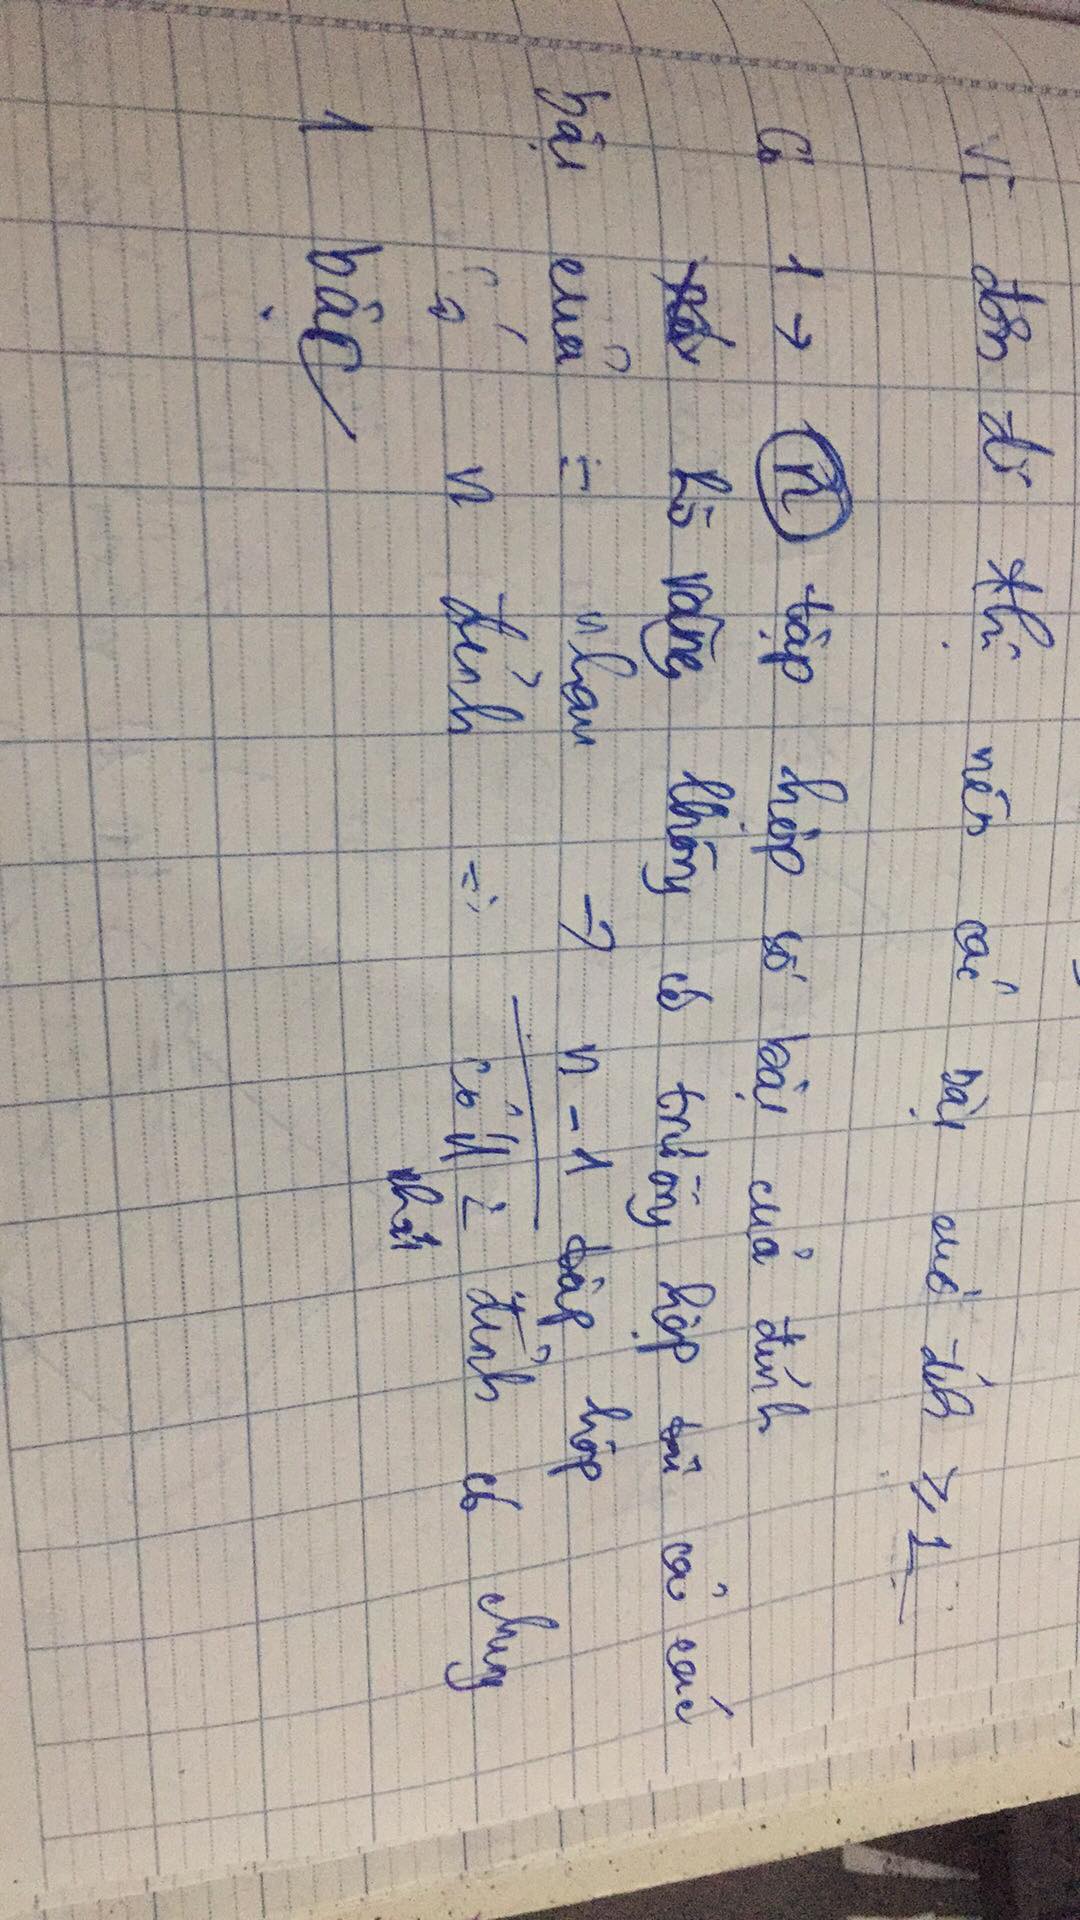 Vì đơn đồ thị nên các bậc của đỉnh ≥ 1
Có 1 → n tập hợp số bậc của đỉnh
Rõ ràng không có trường hợp tất cả các
bậc của = nhau → n - 1 tập hợp
Có n đỉnh ⇒ có ít nhất 2 đỉnh có chung
1 bậc